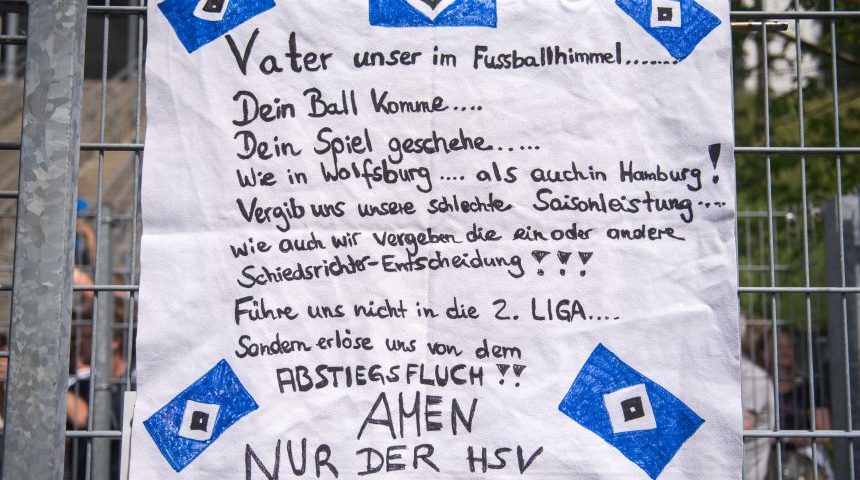 Vater unser im Fussballhimmel.......
Dein Ball Komme....
Dein Spiel geschehe.....
Wie in Wolfsburg .... als auch in Hamburg!
Vergib uns unsere schlechte Saisonleistung....
wie auch wir vergeben die ein oder andere
Schiedsrichter-Entscheidung!!!
Führe uns nicht in die 2. LIGA....
Sondern erlöse uns von dem
ABSTIEGSFLUCH!!
AMEN
NUR DER HSV